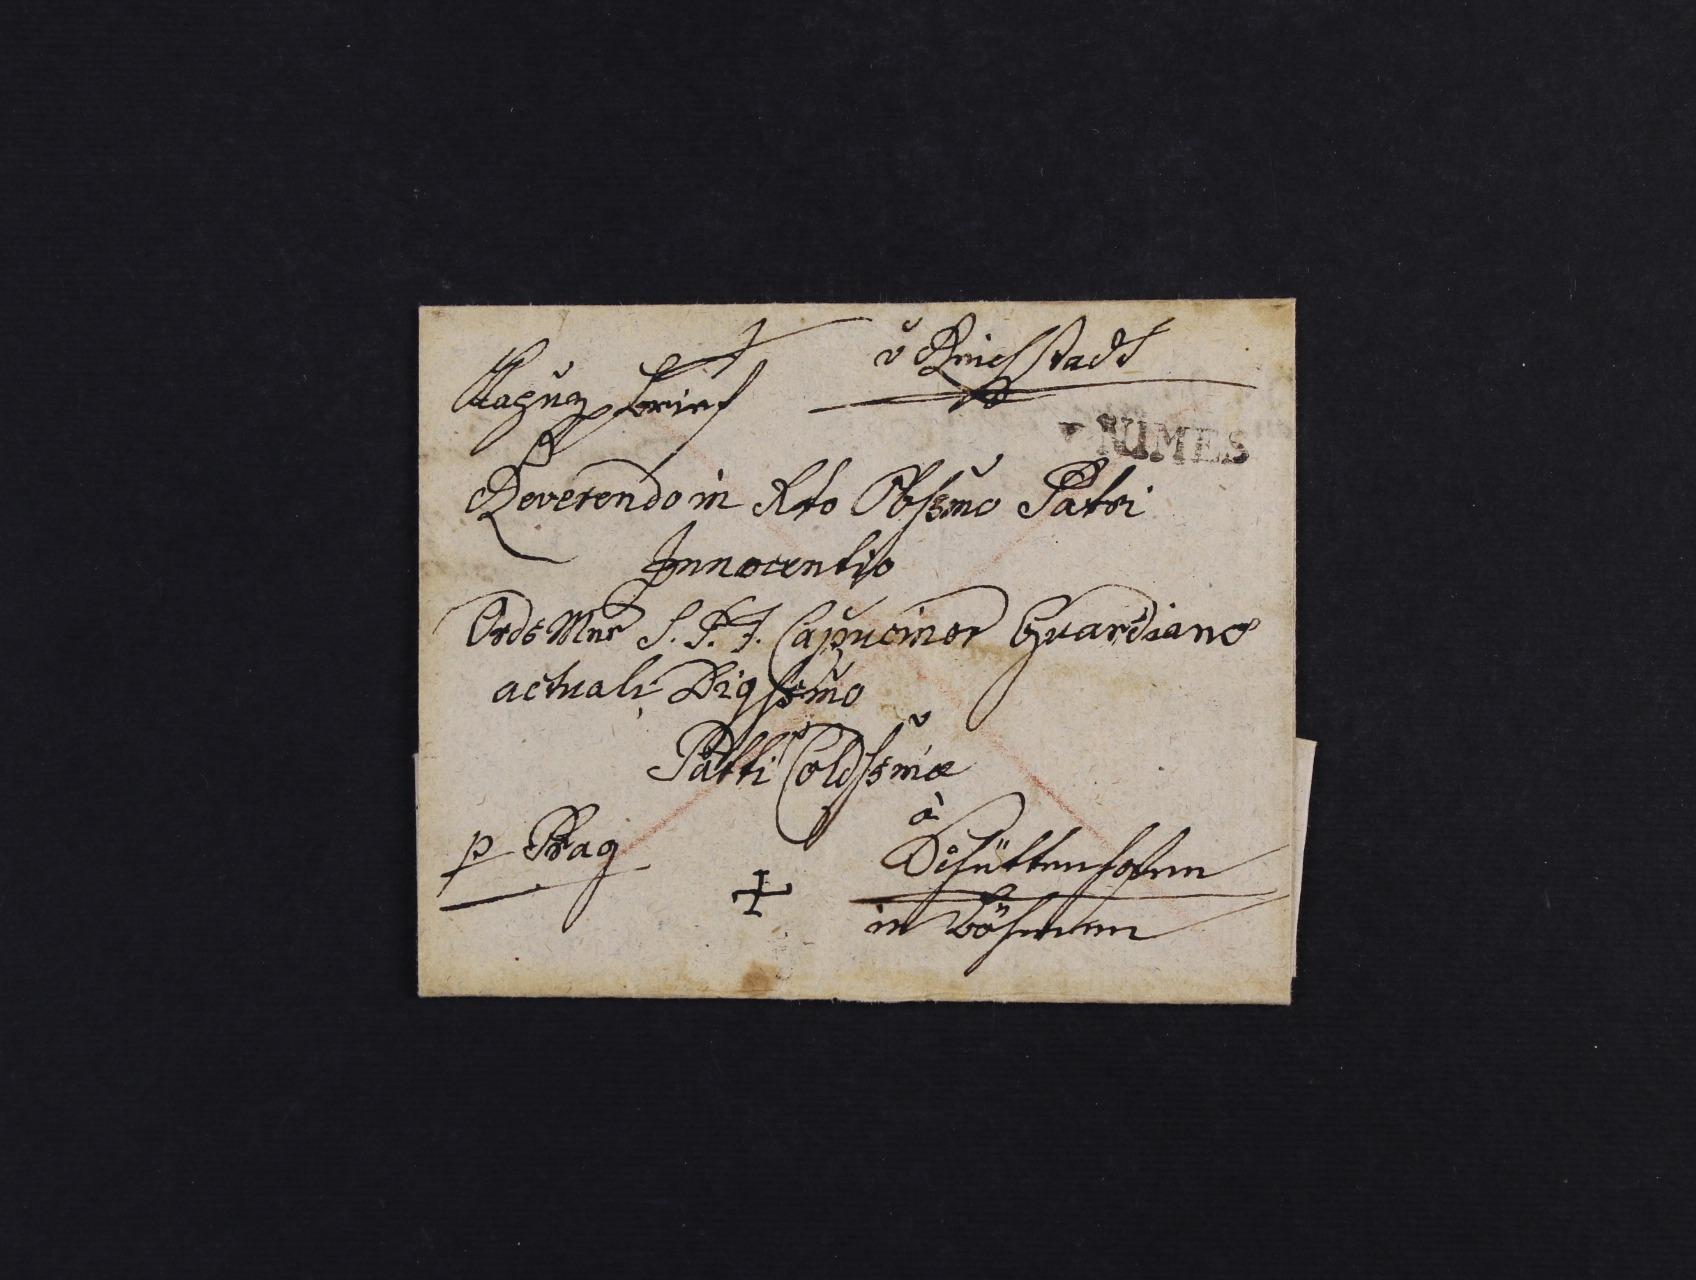 v Reichstadt
Kapuz brief
v. NIMES
Reverendo in Xto Obssmo Patri
Innocentio
Ords Mnr S. P. F. Capucinor Guardiano
actuali Digssmo
Patri Coldssmo
p Prag
à
Schüttenhofen
in Böhmen